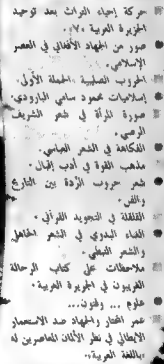 حركة إحياء التراث بعد توحيد
الجزيرة العربية «٧».
صور من الجهاد الأفغاني في العصر
الإسلامي.
الحروب الصليبية «الحملة الأولى.
إسلاميات محمود سامي البارودي.
صورة المرأة في شعر الشريف
الرضي.
الفكاهة في الشعر العباسي.
مذهب القوة في أدب إقبال.
شعر حروب الردة بين التاريخ
والفن.
القلقلة في التجويد القرآني.
الغناء البدوي في الشعر الجاهلي
والشعر النبطي.
ملاحظات على كتاب الرحالة
الغربيون في الجزيرة العربية.
علوم ... وفنون...
عمر المختار والجهاد ضد الاستعمار
الإيطالي في نظر الألمان المعاصرين له
«باللغة العربية».